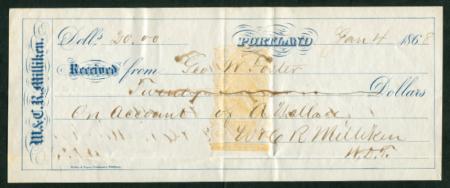 W. & C. R. Milliken.
Doll.s 20.00 PORTLAND Jan 4 1868
Received from Geo W Foster
Twenty Dollars
On Account of A Wallace
W & C R Milliken